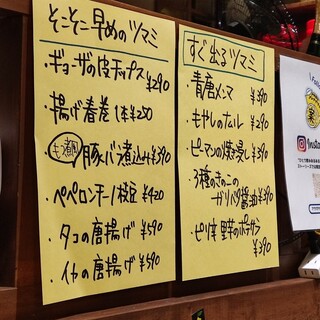 そこそこ早めのツマミ
・ギョーザの皮チップス ¥290
・揚げ春巻 1本 ¥250
もつ煮風
豚バラ煮込み ¥390
・ペペロンチーノ枝豆 ¥420
・タコの唐揚げ ¥590
・イカの唐揚げ ¥590
すぐ出るツマミ
・青唐メンマ ¥390
・もやしのナムル ¥290
・ピーマンの焼き浸し ¥390
・3種のきのこの
ガリバタ醤油 ¥390
・ピリ辛 野菜のポテサラ
¥390